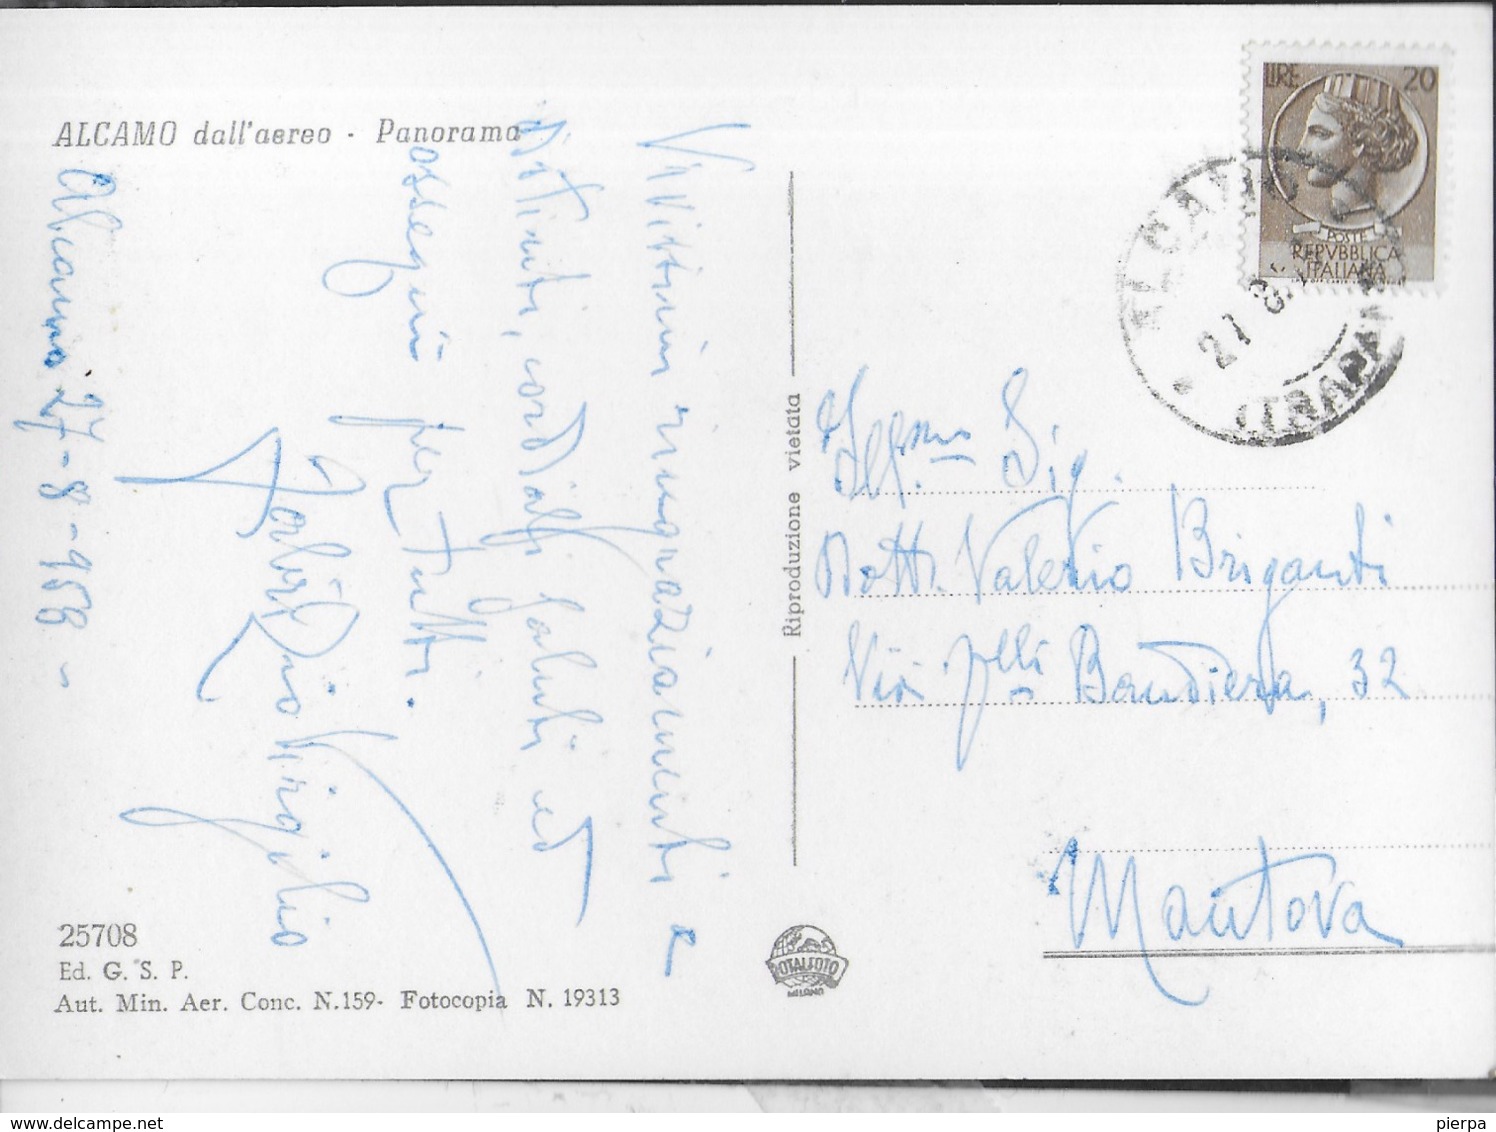 ALCAMO dall'aereo - Panorama
Alcamo 27-8-956 -
Vivissimi ringraziamenti e
distinti, cordiali saluti ed
ossequi per tutti.
Virgilio
25708
Ed. G. S. P.
Aut. Min. Aer. Conc. N.159- Fotocopia N. 19313
Riproduzione vietata
ROTALFOTO
MILANO
LIRE 20
POSTE
REPVBBLICA
ITALIANA
ALCAMO
27 8
(TRAPANI)
Ill.mo Sig.
Dott. Valerio Briganti
Via f.lli Bandiera, 32
Mantova
pierpa
www.delcampe.net